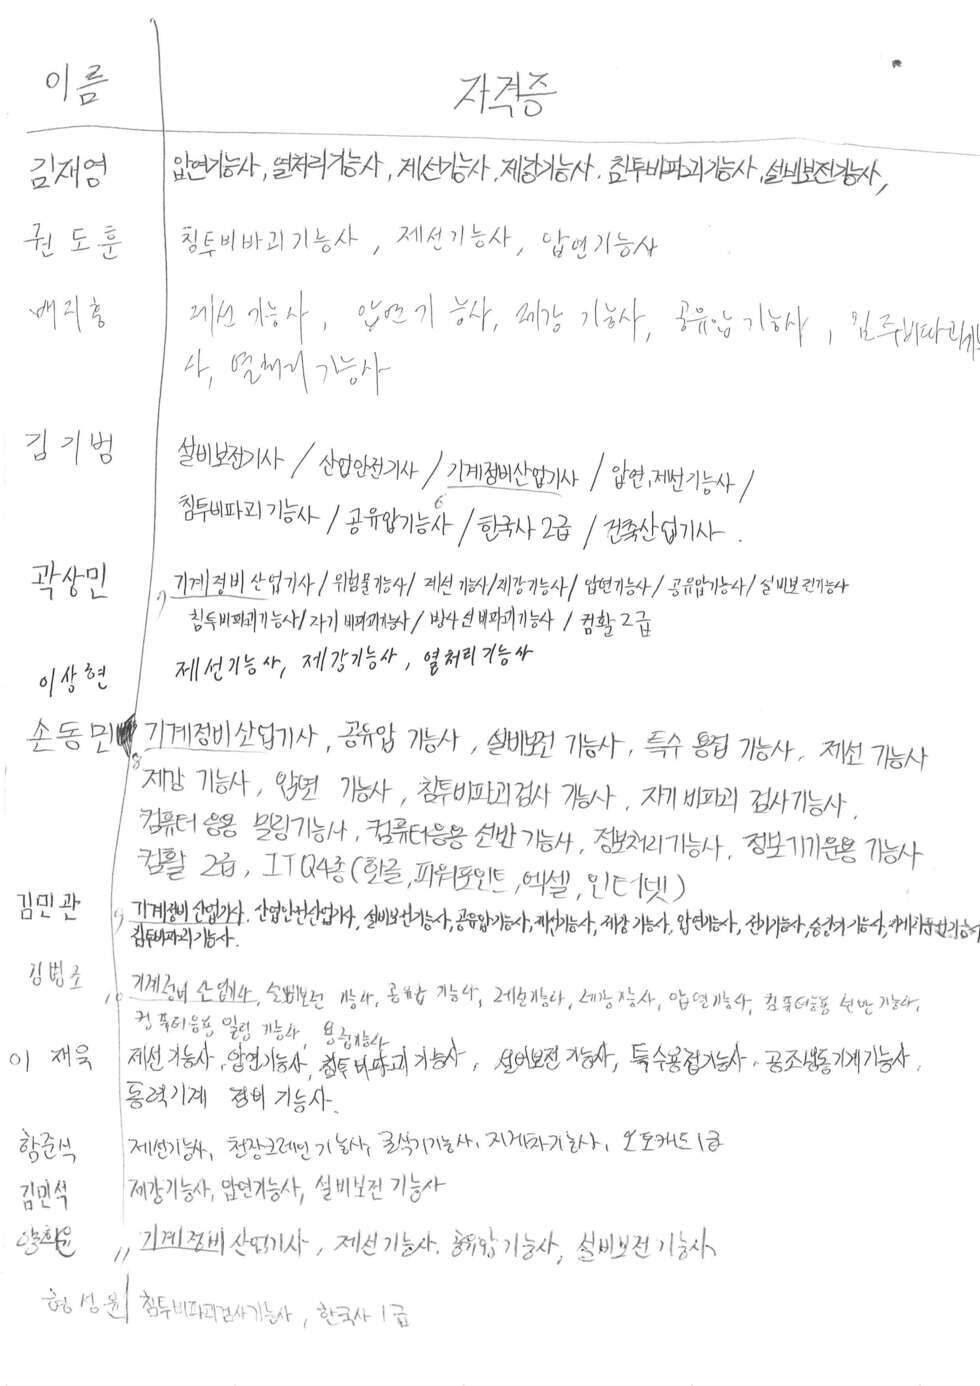 이름 자격증
김재영 압연기능사, 열처리기능사, 제선기능사, 제강기능사, 침투비파괴기능사, 설비보전기능사,
권도훈 침투비바괴기능사, 제선기능사, 압연기능사
배지홍 제선기능사, 압연기능사, 제강기능사, 공유압기능사,
사, 열처리기능사
김기범 설비보전기사 / 산업안전기사 / 기계정비산업기사 / 압연,제선기능사 /
침투비파괴기능사 / 공유압기능사 / 한국사 2급 / 건축산업기사 .
곽상민 기계정비산업기사 / 위험물기능사 / 제선기능사 / 제강기능사 / 압연기능사 / 공유압기능사 / 설비보전기능사
침투비파괴기능사 / 자기비파괴기능사 / 방사선비파괴기능사 / 컴활2급
이상현 제선기능사, 제강기능사, 열처리기능사
손동민 기계정비산업기사, 공유압 기능사, 설비보전 기능사, 특수 용접 기능사, 제선 기능사
제강 기능사, 압연 기능사, 침투비파괴검사 기능사, 자기비파괴 검사기능사,
컴퓨터응용 밀링기능사, 컴퓨터응용 선반기능사, 정보처리기능사, 정보기기운용 기능사
컴활 2급, ITQ4종(한글,파워포인트,엑셀,인터넷)
김민관 기계정비산업기사, 산업안전산업기사, 설비보전기능사, 공유압기능사, 제선기능사, 제강기능사, 압연기능사, 전기기능사, 승강기기능사,
침투비파괴기능사.
김범조 기계정비 산업기사, 설비보전 기능사, 공유압 기능사, 제선기능사, 제강기능사, 압연기능사, 컴퓨터응용 선반기능사,
컴퓨터응용 밀링 기능사, 용접기능사
이재욱 제선기능사, 압연기능사, 침투비파괴기능사, 설비보전기능사, 특수용접기능사, 공조냉동기계기능사,
동력기계 정비 기능사.
함준석 제선기능사, 천장크레인기능사, 굴삭기기능사, 지게차기능사, 오토캐드1급
김민석 제강기능사, 압연기능사, 설비보전 기능사
기계정비산업기사, 제선기능사, 공유압기능사, 설비보전기능사
형성윤 침투비파괴검사기능사, 한국사 1급